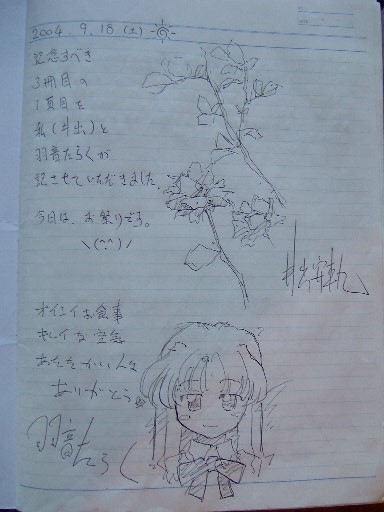 2004. 9. 18 (土)
記念すべき
3冊目の
1頁目を
私(井出)と
羽音たらくが
記させていただきました。
今日は、お祭りです。
\(^-^)/
オイシイお食事
キレイな空気
あたたかい人々
ありがとう
羽音たらく